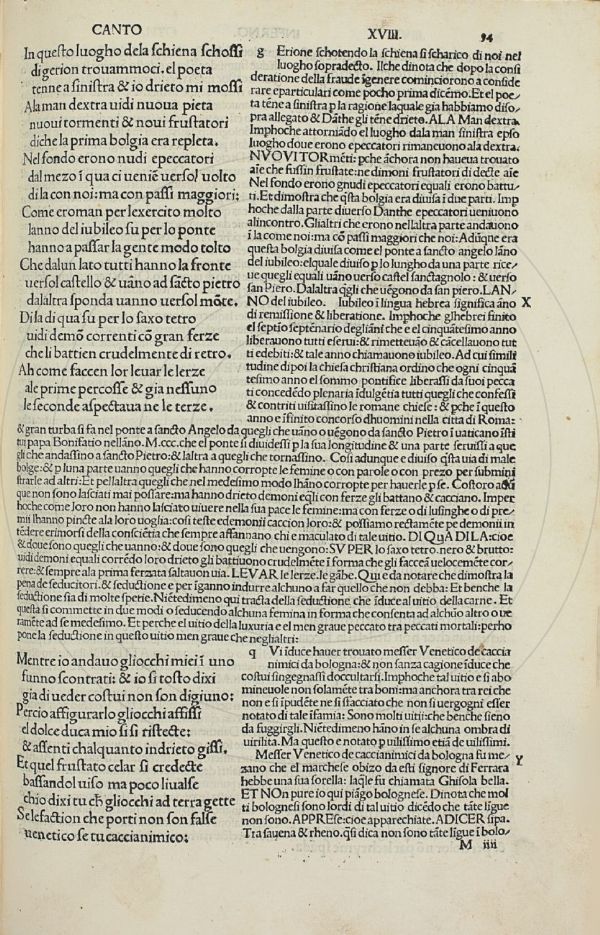 CANTO XVIII. 94
In questo luogho dela schiena schossi
di gerion trouammoci. el poeta
tenne a sinistra & io drieto mi mossi
Ala man dextra uidi nuoua pieta
nuoui tormenti & noui frustatori
di che la prima bolgia era repleta.
Nel fondo erono nudi e peccatori
dal mezo ī qua ci ueniē uersol uolto
di la con noi: ma con passi maggiori:
Come e roman per lexercito molto
lanno del iubileo su per lo ponte
hanno a passar la gente modo tolto
Che dalun lato tutti hanno la fronte
uersol castello & uāno ad sācto pietro
dalaltra sponda uanno uersol mōte.
Di la di qua su per lo saxo tetro
uidi demō correnti cō gran ferze
che li battien crudelmente di retro.
Ah come faccen lor leuar le lerze
ale prime percosse & gia nessuno
le seconde aspectaua ne le terze.
g Erione schotendo la schiena si scharico di noi nel
luogho sopradecto. Il che dinota che dopo la consi
deratione della fraude īgenere cominciorono a conside
rare e particulari come pocho prima dicēmo. Et el poe-
ta tēne a sinistra p la ragione laquale gia habbiamo diso
pra allegato & Dāthe gli tēne drieto. ALA Man dextra.
Imphoche attorniādo el luogho dala man sinistra epso
luogho doue erono e peccatori rimaneuono ala dextra.
NVOVI TOR mēti: pche āchora non haueua trouato
aīe che fussin frustate: ne dimoni frustatori di decte aīe
Nel fondo erono gnudi e peccatori equali erono battu-
ti. Et dimostra che q̄sta bolgia era diuisa ī due parti. Imp
hoche dalla parte diuerso Danthe e peccatori ueniuono
alincontro. Gli altri che erono nellaltra parte andauono
ī la come noi: ma cō passi maggiori che noi: Adūque era
questa bolgia diuisa come el ponte a sancto angelo lāno
del iubileo: elquale diuiso p lo lungho da una parte rice-
ue quegli equali uāno uerso castel sanctagnolo: & uerso
san Piero. Dalaltra q̄gli che uēgono da san piero. LAN-
NO del iubileo. Iubileo ī lingua hebrea significa āno X
di remissione & liberatione. Imphoche glhebrei finito
el septio septenario deglianī che e el cinquātesimo anno
liberauono tutti e serui: & rimetteuāo & cācellauono tut
ti e debiti: & tale anno chiamauono iubileo. Ad cui simili
tudine di poi la chiesa christiana ordino che ogni cinquā
tesimo anno el sommo pontifice liberassi da suoi pecca
ti concedēdo plenaria īdulgētia tutti quegli che confessi
& contriti uisitassino le romane chiese: & pche ī questo
anno e īfinito concorso dhuomini nella citta di Roma:
& gran turba si fa nel ponte a sancto Angelo da quegli che uāno o uēgono da sancto Pietro ī uaticano īsti
tui papa Bonifatio nellāno. M.ccc. che el ponte si diuidessi p la sua longitudine & una parte seruissi a que
gli che andassino a sancto Pietro: & laltra a quegli che tornassino. Cosi adunque e diuiso q̄sta uia di male
bolge: & p luna parte uanno quegli che hanno corropte le femine o con parole o con prezo per submini
strarle ad altri: Et pellaltra quegli che nel medesimo modo lhāno corropte per hauerle p se. Costoro adū
que non sono lasciati mai possare: ma hanno drieto demoni eq̄li con ferze gli battano & cacciano. Imper
hoche come loro non hanno lasciato uiuere nella sua pace le femine: ma con ferze o di lusinghe o di pre-
mii lhanno pincte ala loro uoglia: cosi teste e demonii caccion loro: & possiamo rectamēte pe demonii in
tēdere e rimorsi della consciētia che sempre affannano chi e maculato di tale uitio. DI QuA DI LA: cioe
& doue sono quegli che uanno: & doue sono quegli che uengono: SV PER lo saxo tetro. nero & brutto:
uidi demoni equali corrēdo loro drieto gli battiuono crudelmēte ī forma che gli faccēā uelocemēte cor-
rere: & sempre ala prima ferzata saltauon uia. LEVAR le lerze. le gābe. Qui e da notare che dimostra la
pena de seductori: & seductione e per īganno indurre alchuno a far quello che non debba: Et benche la
seductione sia di molte spetie. Niētedimeno qui tracta della seductione che īduce al uitio della carne. Et
questa si commette in due modi o seducendo alchuna femina in forma che consenta ad alchūo altro o ue-
ramēte ad se medesimo. Et perche el uitio della luxuria e el men graue peccato tra peccati mortali: perho
pone la seductione in questo uitio men graue che neglialtri:
Mentre io andauo gliocchi miei ī uno
funno scontrati: & io si tosto dixi
gia di ueder costui non son digiuno:
Percio affigurarlo gliocchi affissi
el dolce duca mio si si ristecte:
& assenti chalquanto indrieto gissi.
Et quel frustato celar si credecte
bassandol uiso ma poco liualse
chio dixi tu cħ gliocchi ad terra gette
Se le faction che porti non son false
uenetico se tu caccianimico:
q Vi īduce hauer trouato messer Venetico de caccia
nimici da bologna: & non sanza cagione īduce che
costui singegnassi doccultarsi. Imphoche tal uitio e si abo
mineuole non solamēte tra boni: ma anchora tra rei che
non e si īpudēte ne si sfacciato che non si uergogni esser
notato di tale īfamia: Sono molti uitii: che benche sieno
da fuggirgli. Niētedimeno hāno in se alchuna ombra di
uirilita. Ma questo e notato p uilissimo etiā de uilissimi.
Messer Venetico de caccianimici da bologna fu me- Y
zano che el marchese obizo da esti signore di Ferrara
hebbe una sua sorella: laq̄le fu chiamata Ghisola bella.
ET NOn pure io qui piāgo bolognese. Dinota che mol
ti bolognesi sono lordi di tal uitio dicēdo che tāte ligue
non sono. APPREse: cioe apparechiate. A DICER sipa.
Tra sauena & rheno. q̄si dica non sono tāte ligue ī bolo-
M iiii